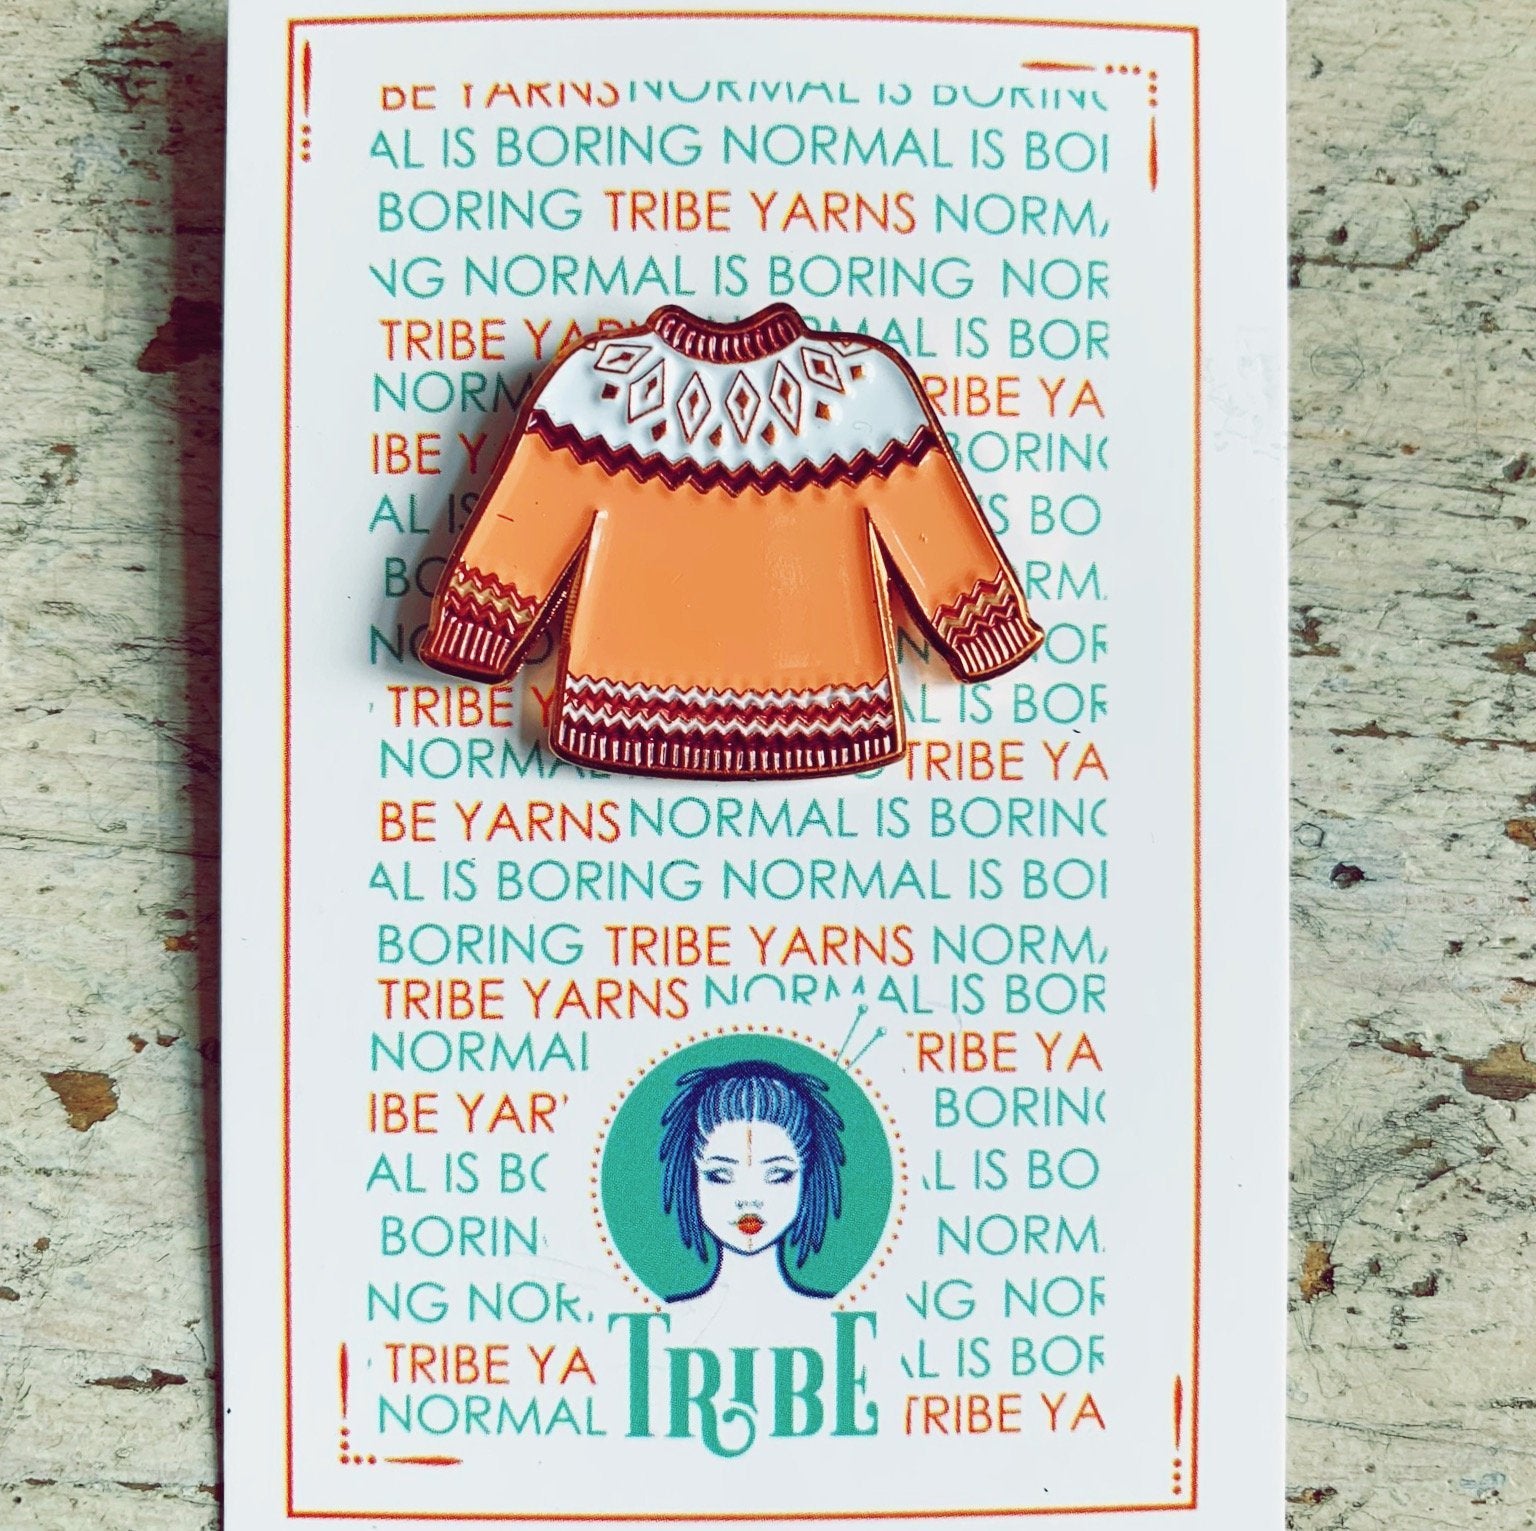 BE YARNS NORMAL IS BORING
AL IS BORING NORMAL IS BO
BORING TRIBE YARNS NORM
NG NORMAL IS BORING NOR
TRIBE YAR MAL IS BOR
NORM TRIBE YA
IBE Y BORING
AL IS IS BO
BO RM
NO NOR
TRIBE Y AL IS BOR
NORMA G TRIBE YA
BE YARNS NORMAL IS BORING
AL IS BORING NORMAL IS BO
BORING TRIBE YARNS NORM
TRIBE YARNS NORMAL IS BOR
NORMAL TRIBE YA
IBE YAR BORING
AL IS BO L IS BO
BORIN NORM
NG NOR NG NOR
TRIBE YA AL IS BOR
NORMAL TRIBE TRIBE YA